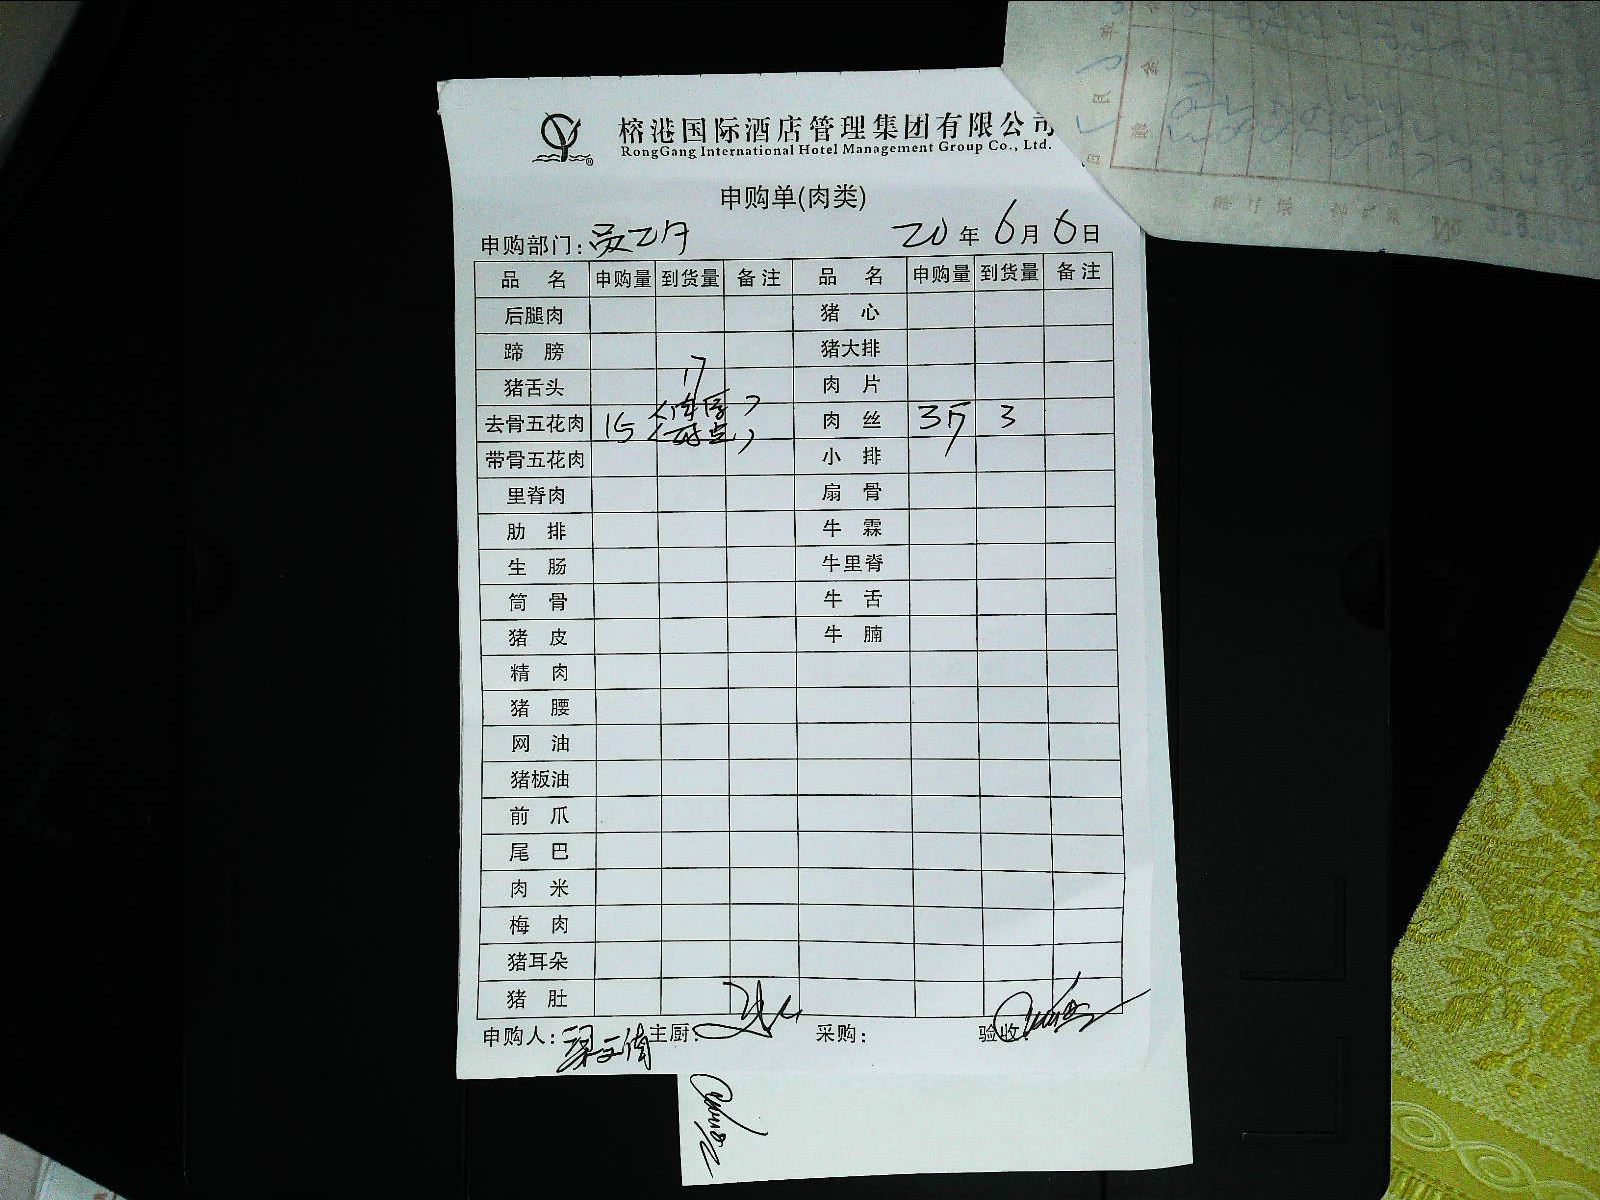 榕港国际酒店管理集团有限公司
RongGang International Hotel Management Group Co., Ltd.
申购单(肉类)
申购部门: 20年6月6日
品名 申购量 到货量 备注 品名 申购量 到货量 备注
后腿肉 猪心
蹄膀 猪大排
猪舌头 17 肉片
去骨五花肉 15 肉丝 3斤 3
带骨五花肉 小排
里脊肉 扇骨
肋排 牛霖
生肠 牛里脊
筒骨 牛舌
猪皮 牛腩
精肉
猪腰
网油
猪板油
前爪
尾巴
肉米
梅肉
猪耳朵
猪肚
申购人: 主厨: 采购: 验收: